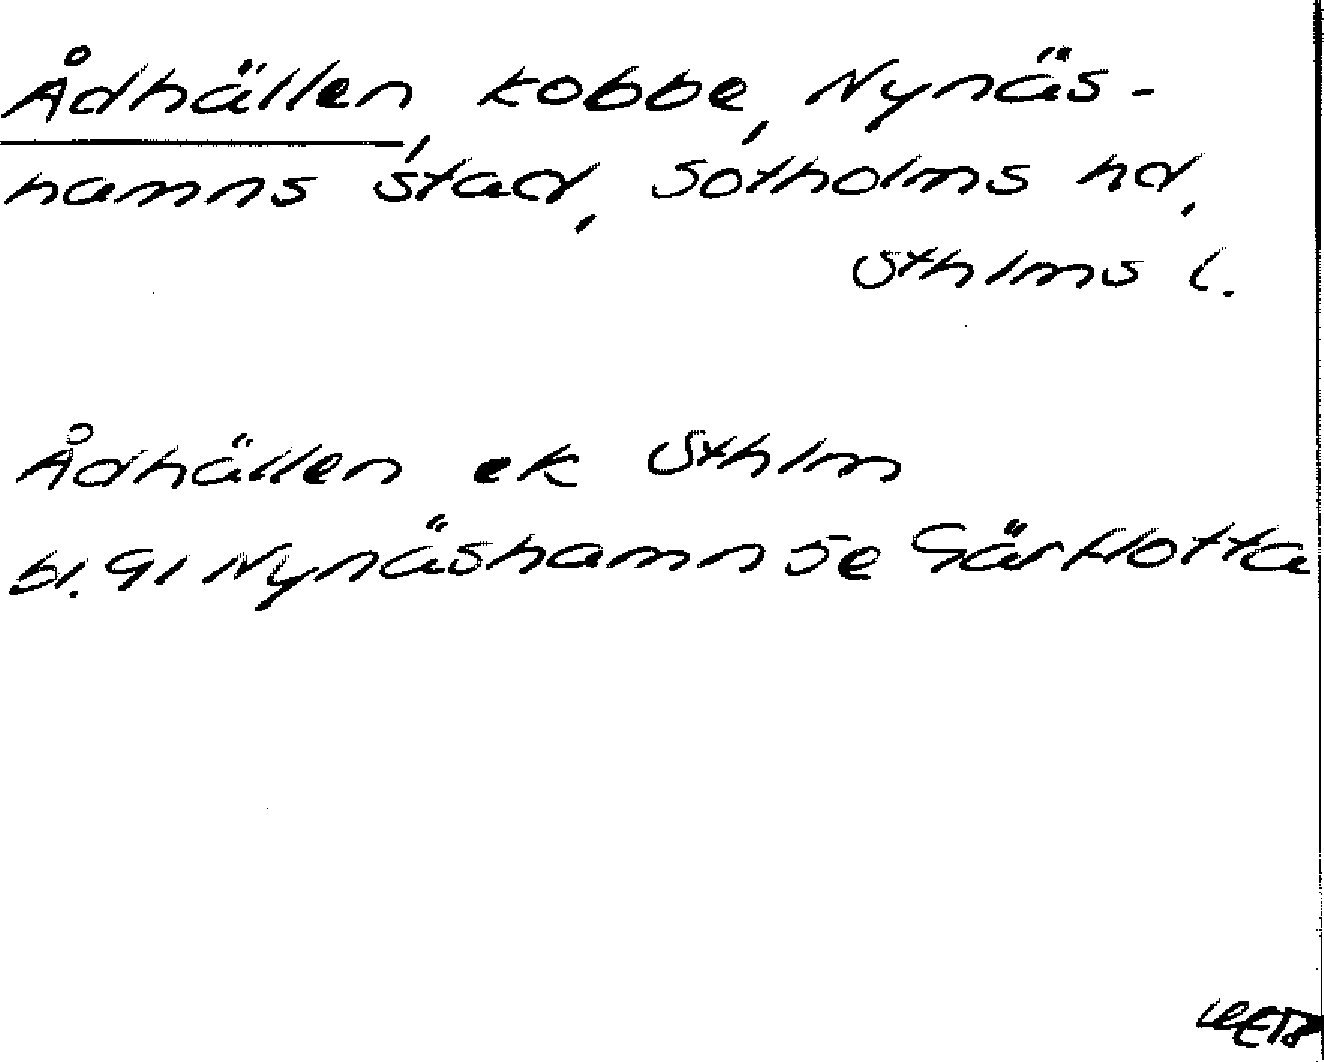 Ådhällen, kobbe, Nynäs-
hamns stad, Sotholms hd,
Sthlms l.
Ådhällen ek Sthlm
bl. 91 Nynäshamn se Gåsflotta